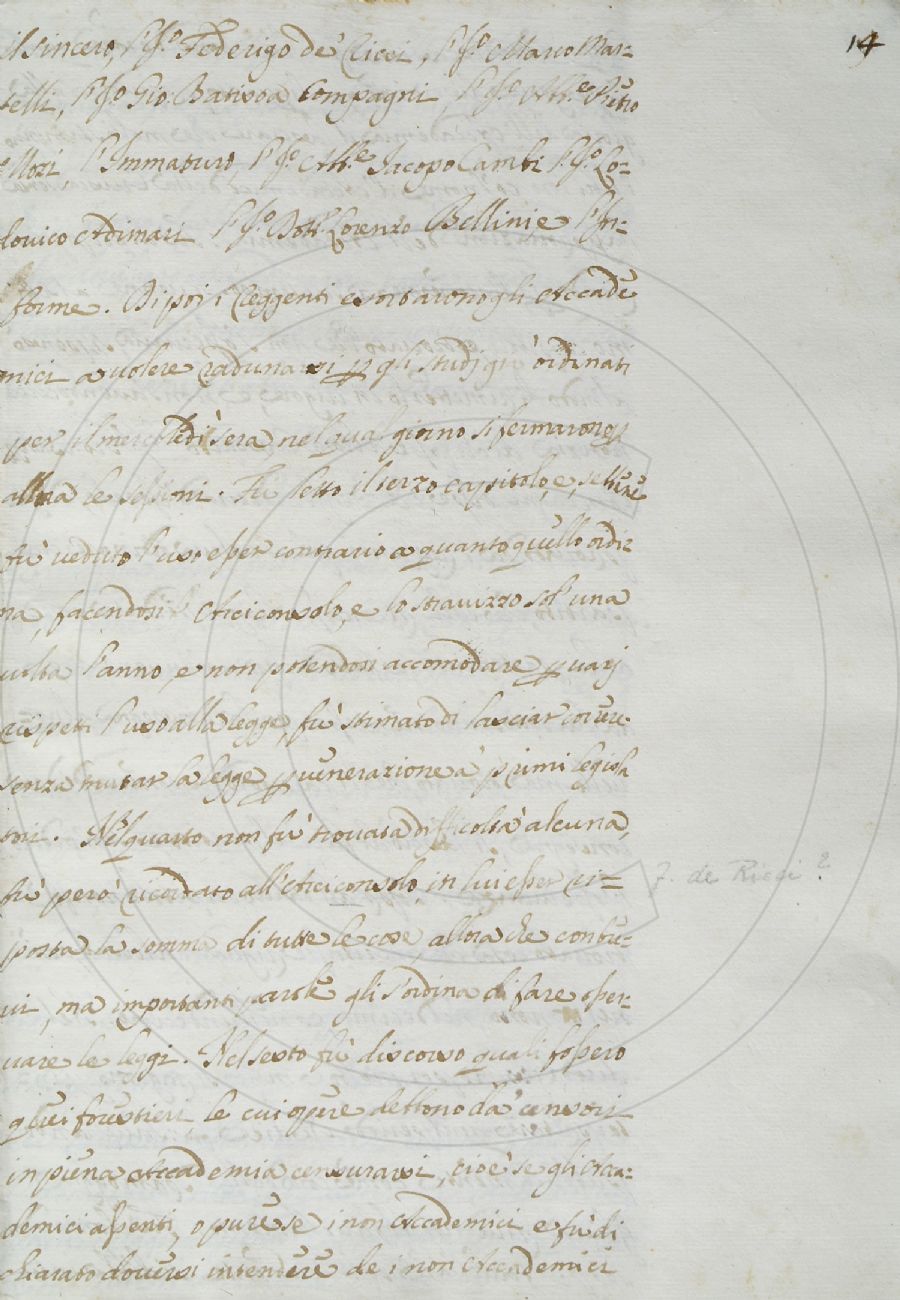 14
il sincero, l'Ill.o Federigo de' Ricci, l'Ill.o Marco Mar-
telli, l'Ill.o Gio: Batista Compagni l'Ill.o Abb.e Pietro
Mozi l'Immaturo, l'Ill.o Abb.e Jacopo Cambi l'Ill.o Lo-
dovico Adimari l'Ill.o Dott.r Lorenzo Bellini e l'In-
forme. Di poi i Reggenti esortarono gli Accade
mici a volere radunarsi p gli studj già ordinati
per il mercoledì sera nel qual giorno si fermarono p
allora le sessioni. Fu letto il terzo capitolo, e, se bene
fù veduto l'uso esser contrario a quanto quello ordi-
na, facendosi Arciconsolo, e lo stravizzo sol' una
volta l'anno, e non potendosi accomodare p varj
rispetti l'uso alla legge, fù stimato di lasciar correre
senza mutar la legge p venerazione a' primi legisla
tori. Nel quarto non fù trovata difficoltà alcuna,
fù però ricordato all'Arciconsolo in lui esser ri=
posta la somma di tutte le cose, allora che con bre-
vi, ma importanti parole gli s'ordina di fare osser-
vare le leggi. Nel sesto fù discorso quali fossero
quei forestieri le cui opere debbono da' censori
in piena Accademia censurarsi, cioè se gli Acca-
demici assenti, o pure se i non Accademici e fù di
chiarato doversi intendere de i non Accademici
F. de Ricci?